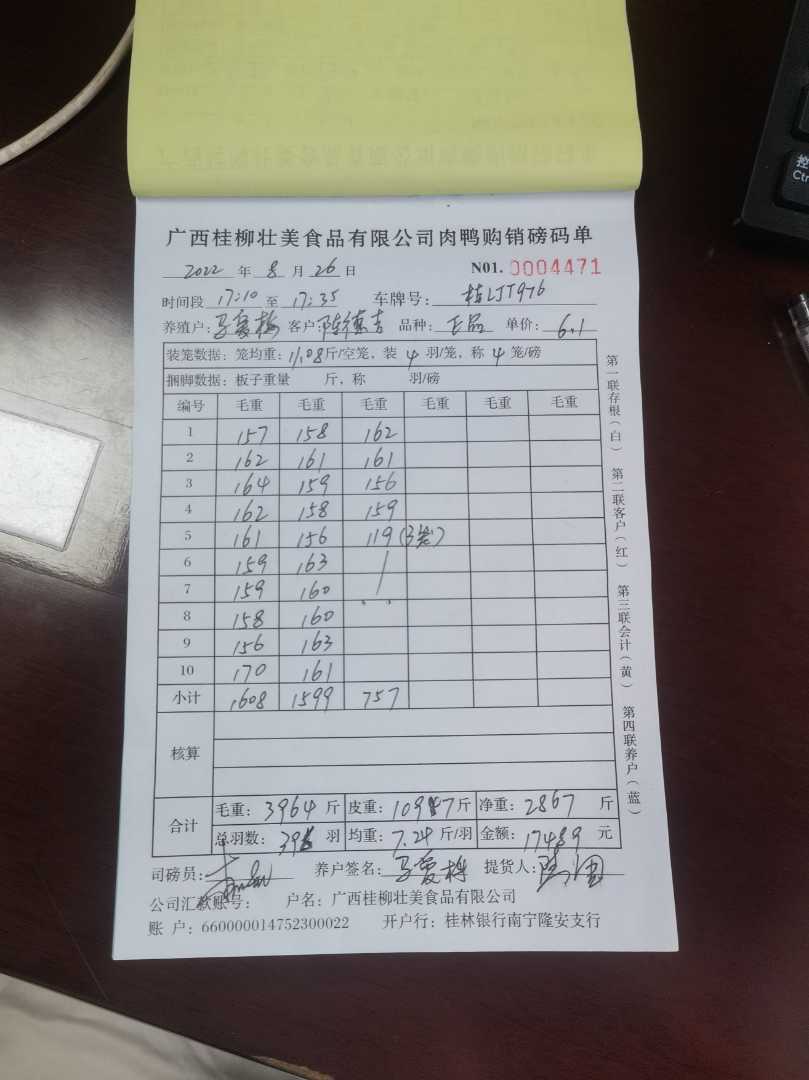 广西桂柳壮美食品有限公司肉鸭购销磅码单
2022 年 8 月 26 日 N01. 0004471
时间段 17:10 至 17:35 车牌号: 桂LJT976
养殖户: 客户: 陈德吉 品种: 正品 单价: 6.1
装笼数据: 笼均重: 11.08斤/空笼, 装 4 羽/笼, 称 4 笼/磅
捆脚数据: 板子重量 斤, 称 羽/磅
编号 毛重 毛重 毛重 毛重 毛重 毛重
1 157 158 162
2 162 161 161
3 164 159 156
4 162 158 159
5 161 156 119 (3笼)
6 159 163
7 159 160
8 158 160
9 156 163
10 170 161
小计 1608 1599 757
核算
合计
毛重: 3964 斤 皮重: 1097斤 净重: 2867 斤
总羽数: 396 羽 均重: 7.24 斤/羽 金额: 17489 元
司磅员: 养户签名: 提货人:
公司汇款账号: 户名: 广西桂柳壮美食品有限公司
账 户: 660000014752300022 开户行: 桂林银行南宁隆安支行
第一联存根(白) 第二联客户(红) 第三联会计(黄) 第四联养户(蓝)
控
Ctr